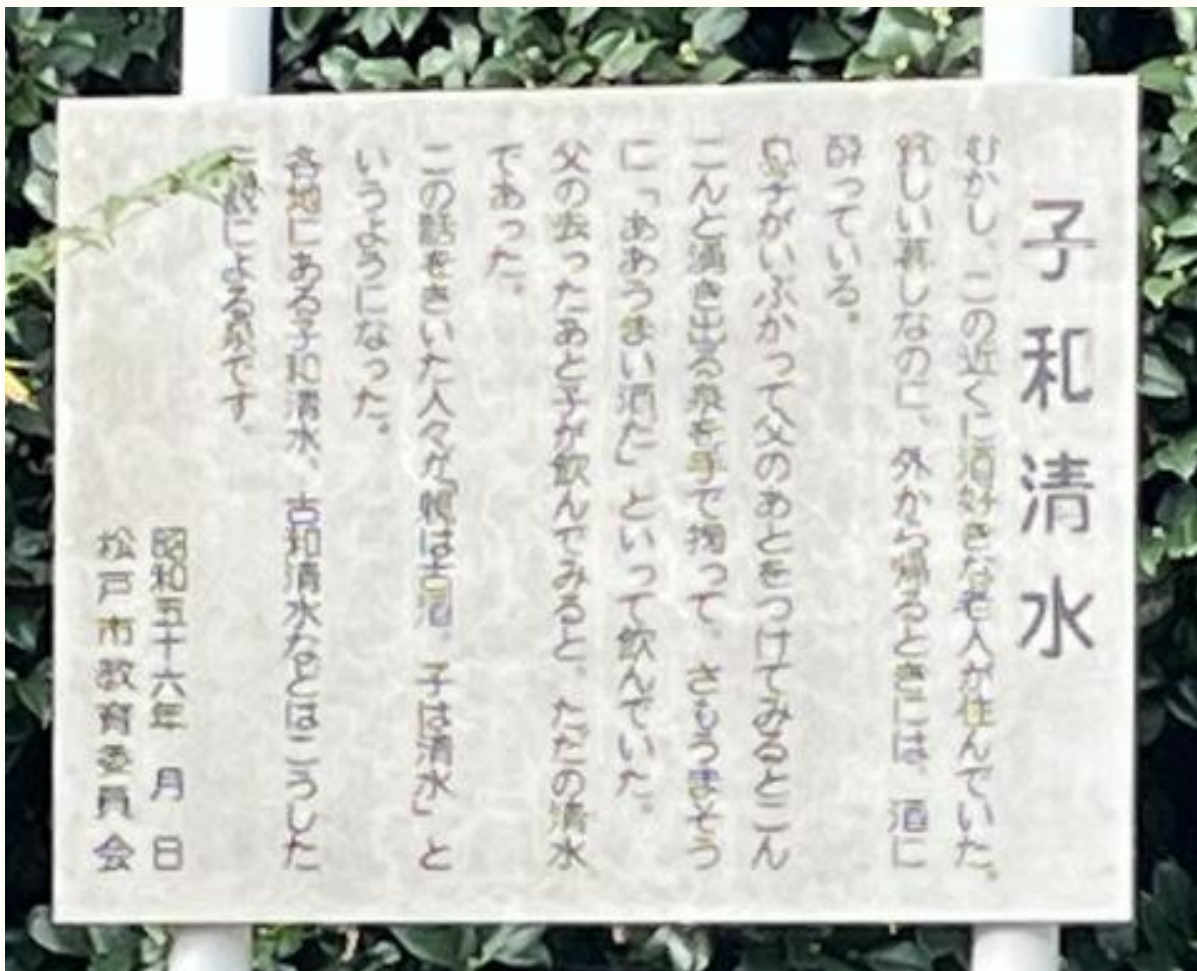 子和清水
むかし、この近くに酒好きな老人が住んでいた。
貧しい暮しなのに、外から帰るときには、酒に
酔っている。
息子がいぶかって父のあとをつけてみるとこん
こんと湧き出る泉を手で掬って、さもうまそう
に「ああうまい酒だ」といって飲んでいた。
父の去ったあと子が飲んでみると、ただの清水
であった。
この話をきいた人々が「親は古酒、子は清水」と
いうようになった。
各地にある子和清水、古和清水などはこうした
によるです。
昭和五十六年 月 日
松戸市教育委員会